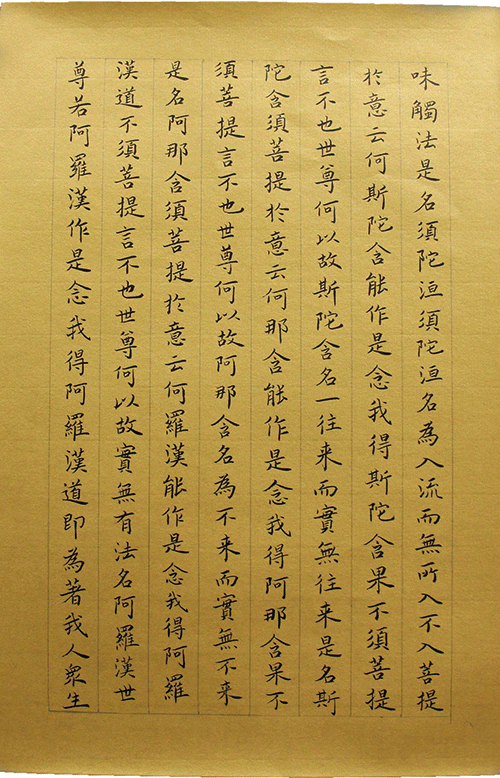 味觸法是名須陀洹須陀洹名為入流而無所入不入菩提
於意云何斯陀含能作是念我得斯陀含果不須菩提
言不也世尊何以故斯陀含名一往来而實無往来是名斯
陀含須菩提於意云何那含能作是念我得阿那含果不
須菩提言不也世尊何以故阿那含名為不来而實無不来
是名阿那含須菩提於意云何羅漢能作是念我得阿羅
漢道不須菩提言不也世尊何以故實無有法名阿羅漢世
尊若阿羅漢作是念我得阿羅漢道即為著我人眾生